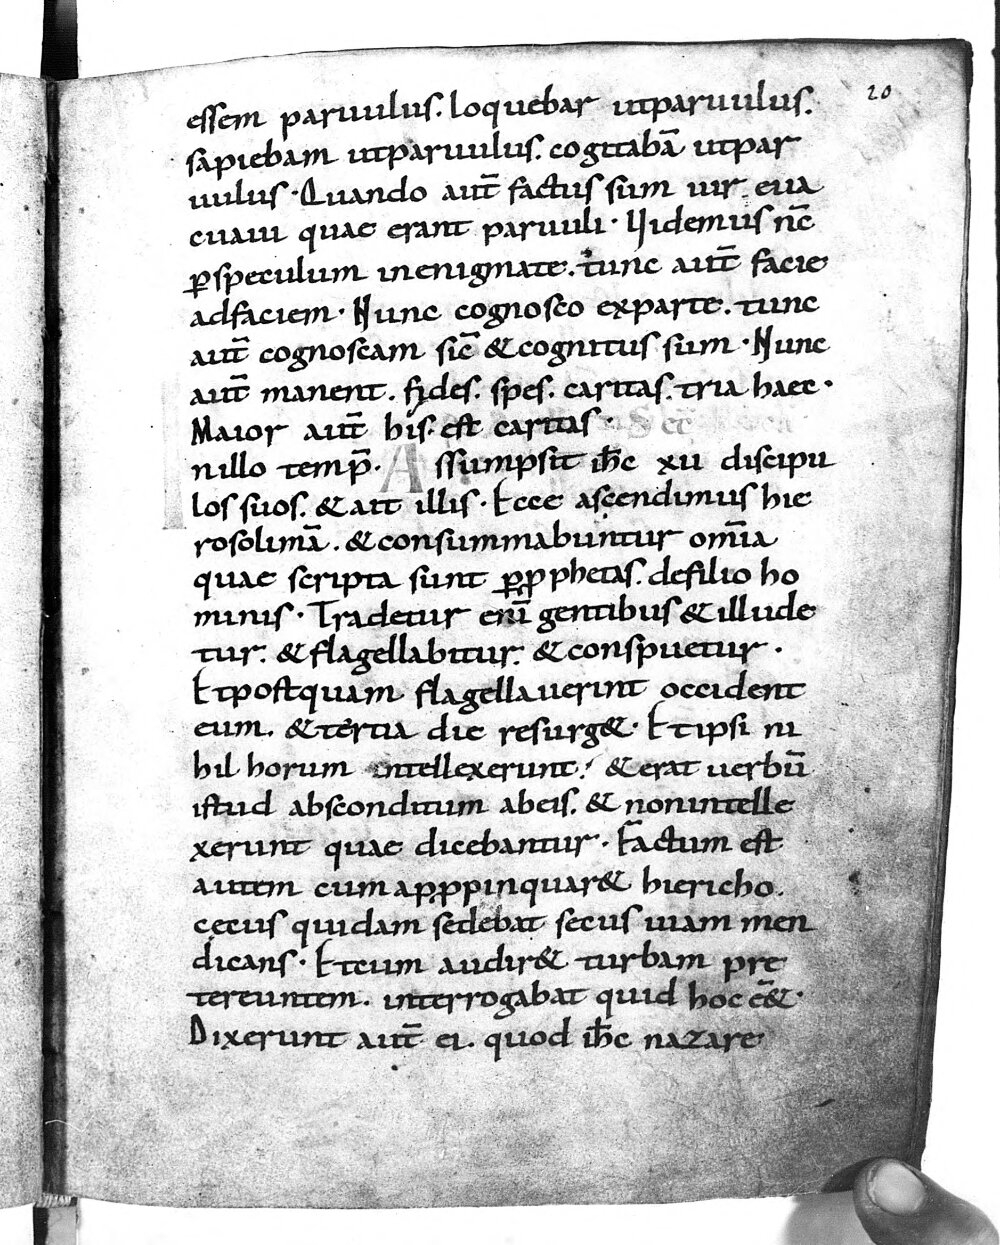 20
essem paruulus. loquebar utparuulus.
sapiebam utparuulus. cogitabā utpar
uulus · Quando aut̄ factus sum uir. eua
cuaui quae erant paruuli · Uidemus nc̄
ꝑspeculum inenigmate. tunc aut̄ facie
adfaciem · Nunc cognosco exparte. tunc
aut̄ cognoscam sic̄ &cognitus sum · Nunc
aut̄ manent. fides. spes. caritas. tria haec ·
Maior aut̄ his. est caritas ·
nillo temp̄. Assumpsit ih̄c xii discipu
los suos. & ait illis · Ecce ascendimus hie
rosolimā. &consummabuntur om̄ia
quae scripta sunt ꝑꝓphetas. defilio ho
minis · Tradetur eni̅ gentibus & illude
tur. & flagellabitur. & conspuetur ·
Etpostquam flagellauerint occident
eum. &tertia die resurg& · Etipsi ni
hil horum intellexerunt. &erat uerbū
istud absconditum abeis. & nonintelle
xerunt quae dicebantur · Factum est
autem cum apꝓpinquar& hiericho.
cęcus quidam sedebat secus uiam men
dicans · Etcum audir& turbam pre
tereuntem. interrogabat quid hoc ēe& ·
Dixerunt aut̄ ei. quod ih̄c nazare